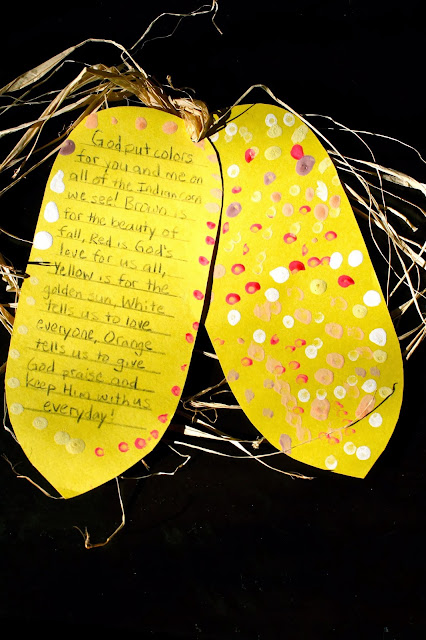 God put colors
for you and me on
all of the Indian corn
we see! Brown is
for the beauty of
fall, Red is God's
love for us all,
Yellow is for the
golden sun, White
tells us to love
everyone, Orange
tells us to give
God praise and
keep Him with us
everyday!